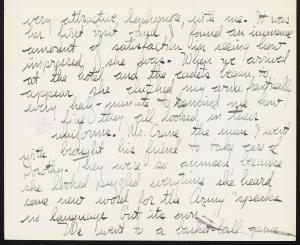 very attractive, sophomore, with me. It was
her first visit and I found an immense
amount of satisfaction in seeing how
impressed she was. When we arrived
at the hotel and the cadets began to
appear she clutched my arm frantically
every half-minute to remind me how
fine they all looked in their
uniforms. Mr. Crane the man I went
with, brought his friend to take care of
Dorothy. They were so amused because
she looked puzzled everytime she heard
some new word for the Army speaks
no language but its own.
We went to a basket-ball game